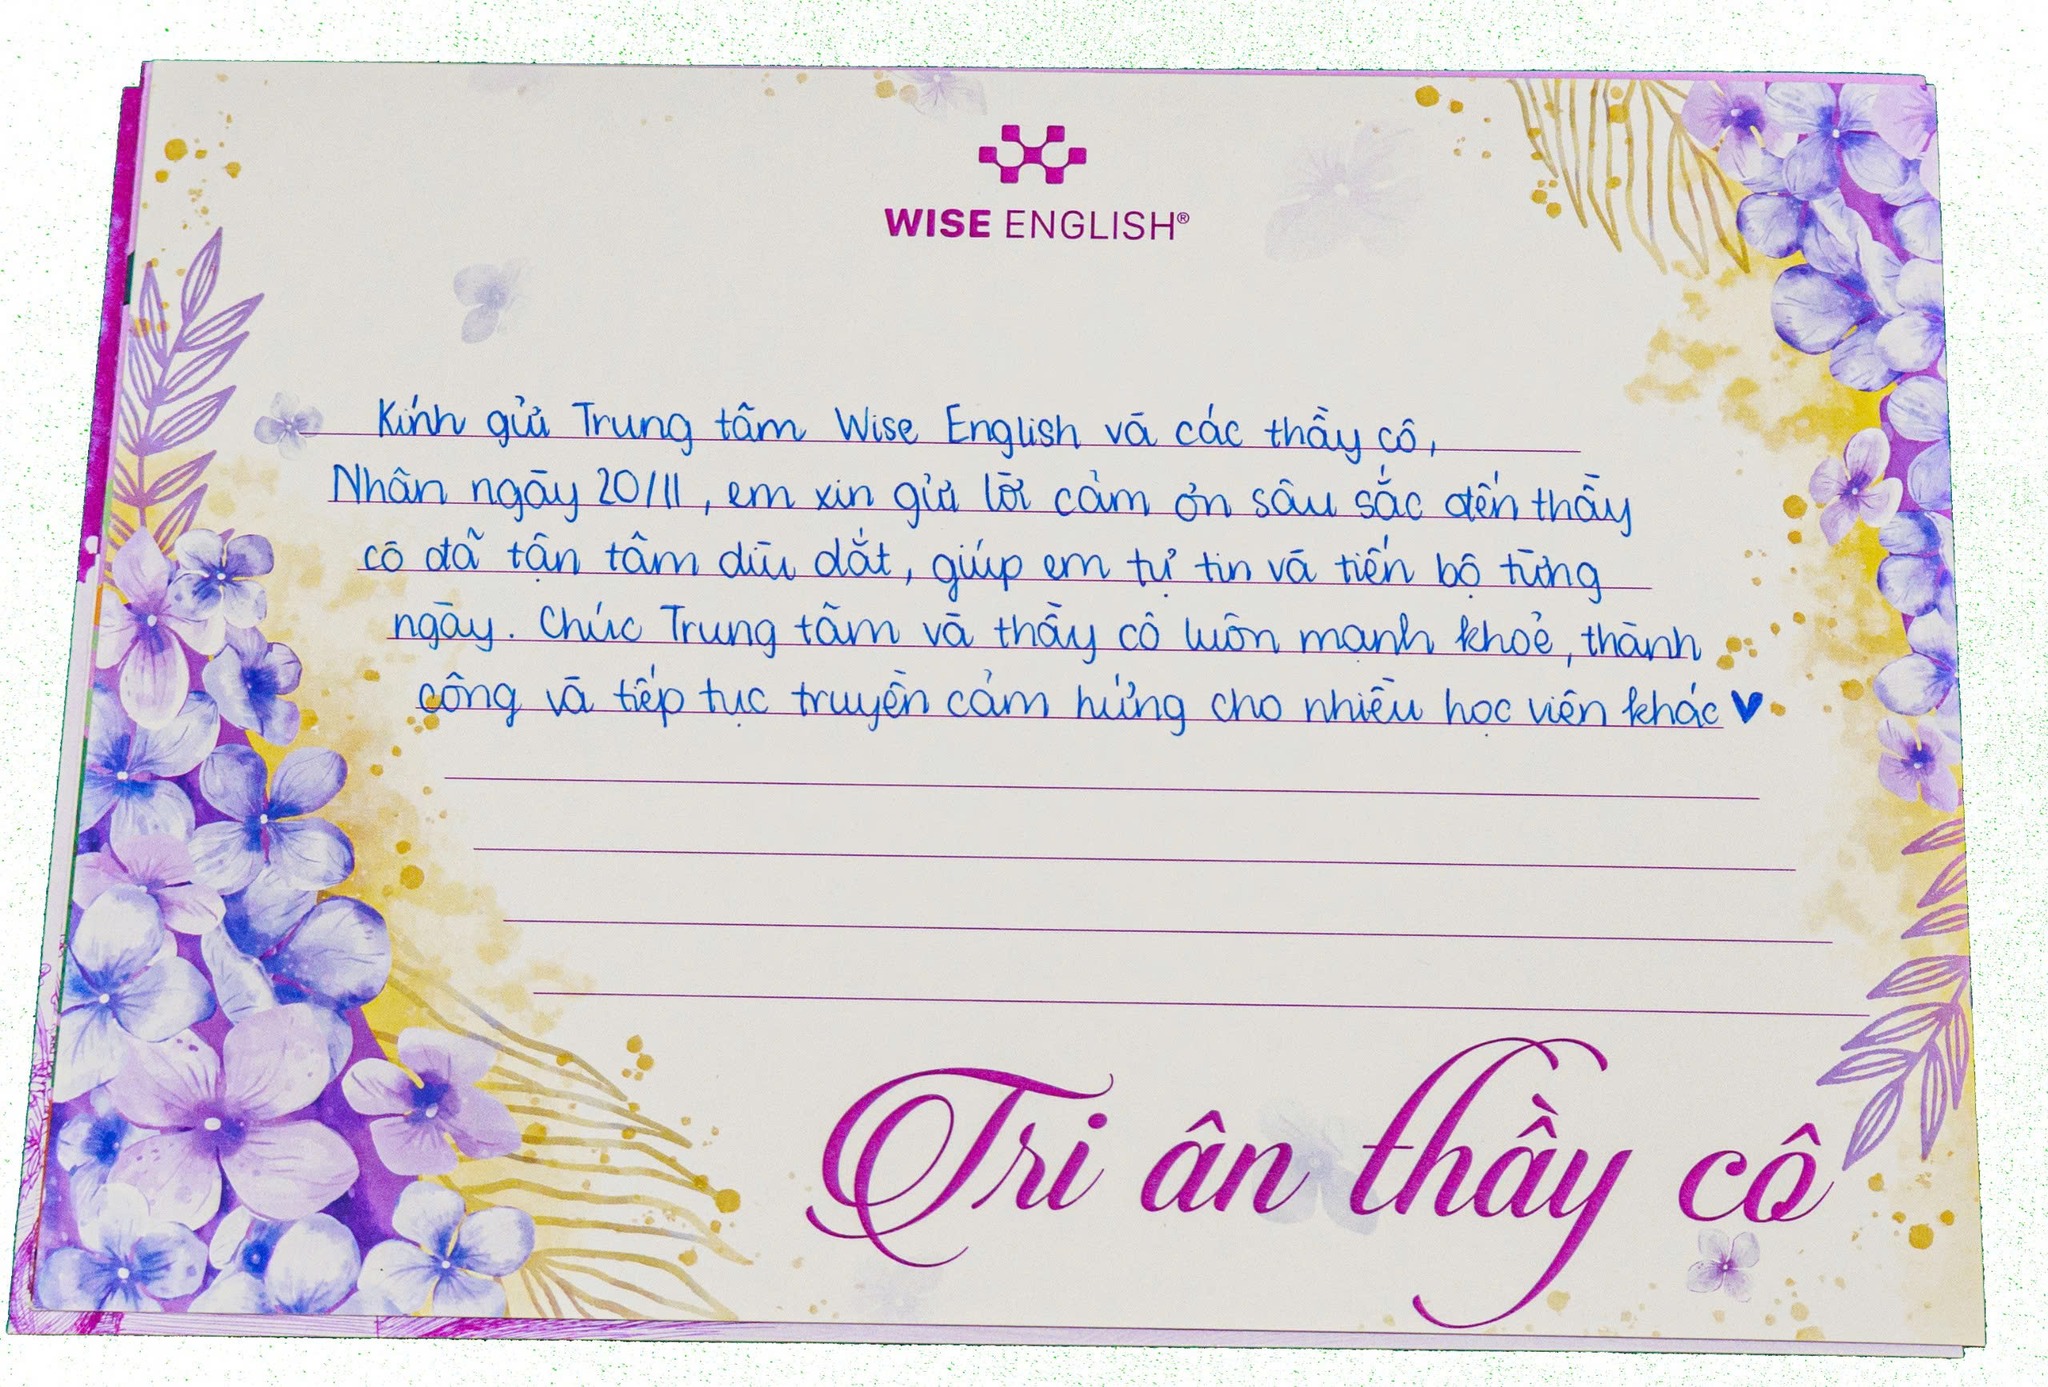 WISE ENGLISH®
Kính gửi Trung tâm Wise English và các thầy cô,
Nhân ngày 20/11, em xin gửi lời cảm ơn sâu sắc đến thầy
cô đã tận tâm dìu dắt, giúp em tự tin và tiến bộ từng
ngày. Chúc Trung tâm và thầy cô luôn mạnh khoẻ, thành
công và tiếp tục truyền cảm hứng cho nhiều học viên khác ♥
Tri ân thầy cô